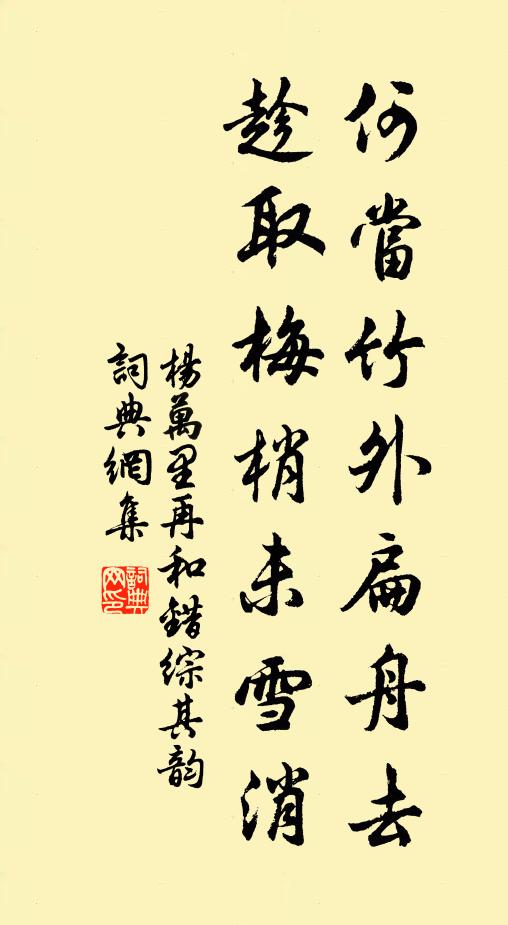 何當竹外扁舟去
趁取梅梢未雪消
楊萬里再和錯綜其韵
詞典網集
詞典网印